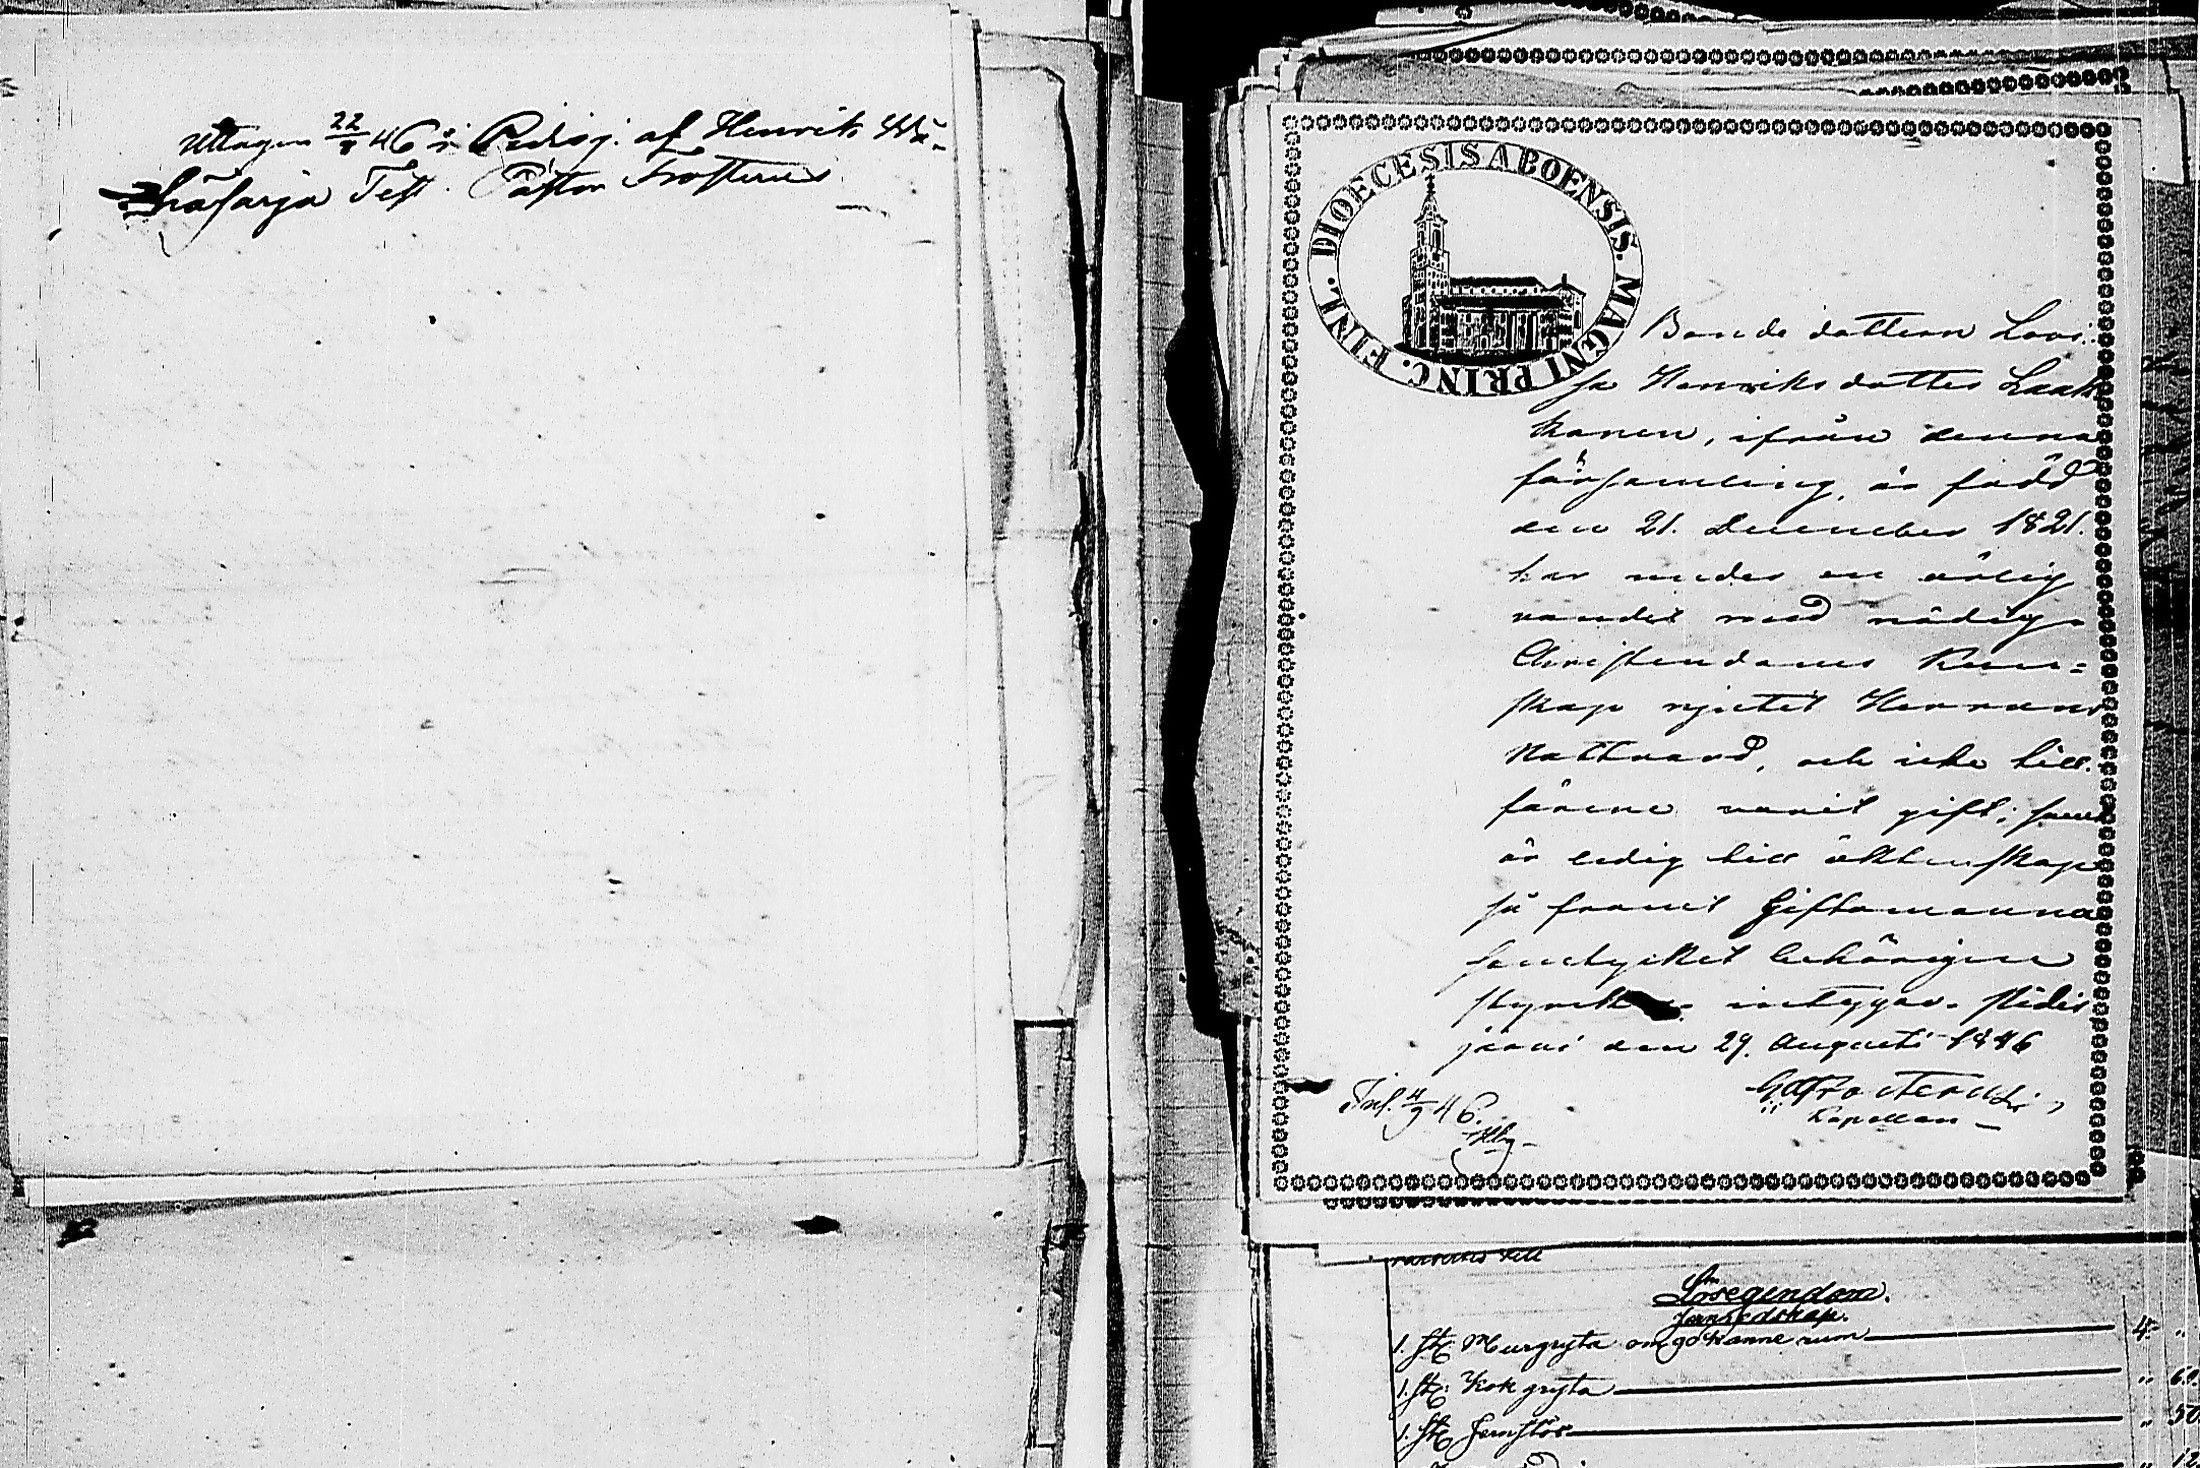 Uttagen 22/8 46 i Pedisj. af Henrik
Test. Pastor Frosterus
DIOECESIS ABOENSIS. MAGNI PRINC. FINL.
Bonde dottern Lovi-
sa Henriksdotter Laak
konen, ifrån denna
församling, är född
den 21. December 1821.
har under en ärlig
vandel med nödig
Christendoms Kun=
skap njutit Herrans
Nattvard, och icke till-
förene varit gift; samt
är ledig till äktenskap
så framt Giftomanna
samtycket behörigen
styrkt intygar. Pidis
järvi den 29. Augusti 1846
Frosterus,
Kapellan
Inl. 4/9 46.
Lösegendom.
Jernredskap.
1. st. Murgryta om 90 kanne rum 4.
1. st. Kokgryta " 60.
1. st. Jernstör " 50
" 12